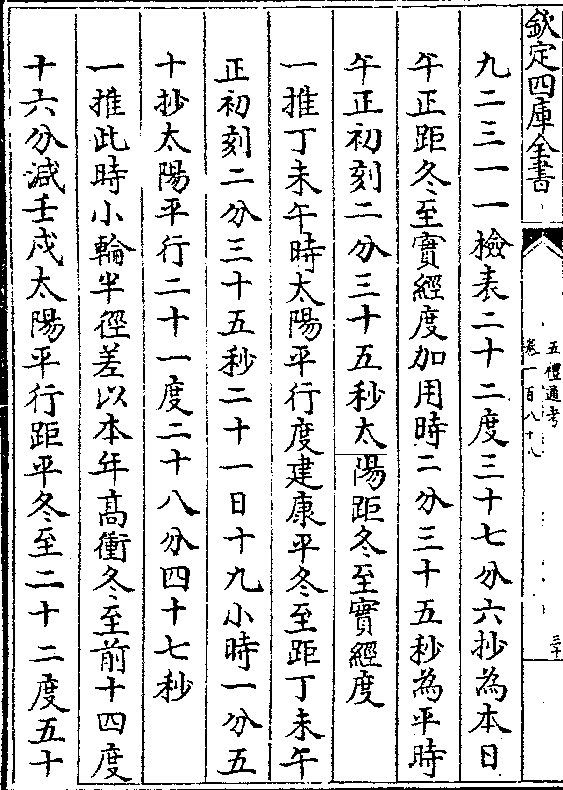 欽定四庫全書
五禮通考
卷一百八十八
三十
九二三一一檢表二十二度三十七分六抄為本日
午正距冬至實經度加用時二分三十五秒為平時
午正初刻二分三十五秒太陽距冬至實經度
一推丁未午時太陽平行度建康平冬至距丁未午
正初刻二分三十五秒二十一日十九小時一分五
十抄太陽平行二十一度二十八分四十七秒
一推此時小輪半徑差以本年高衝冬至前十四度
十六分減壬戌太陽平行距平冬至二十二度五十